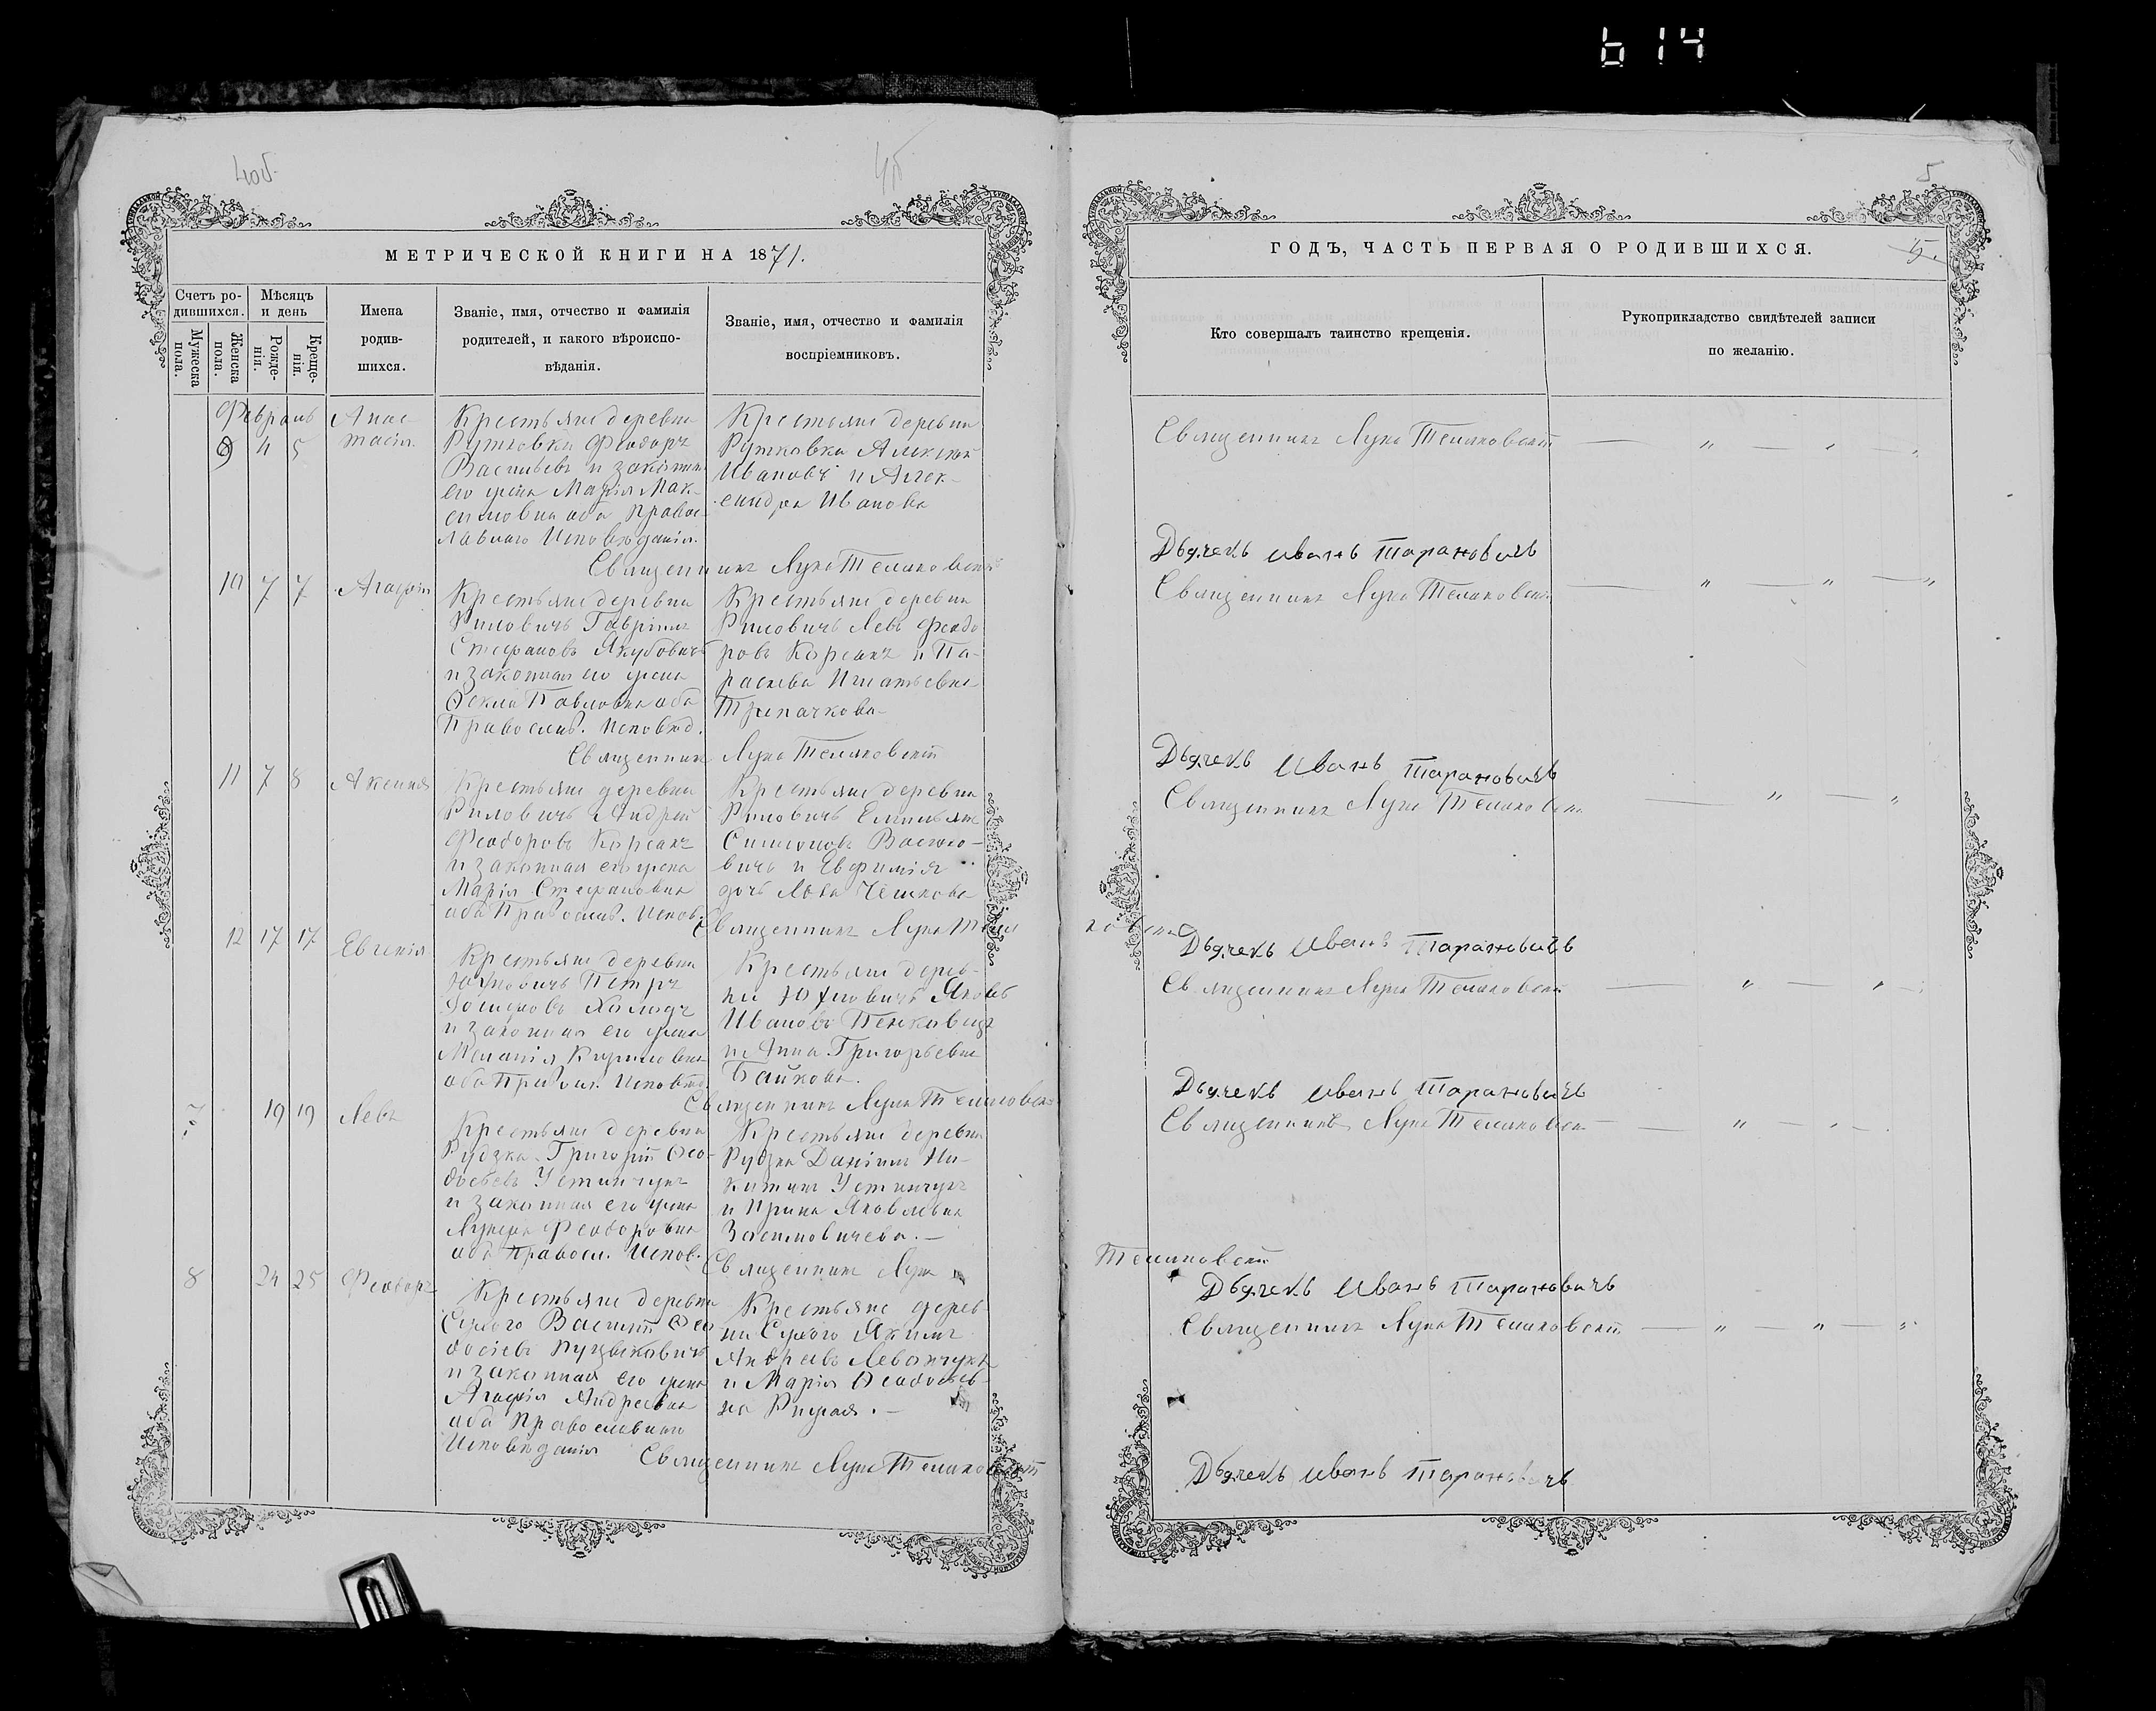 614
4об.
5
МЕТРИЧЕСКОЙ КНИГИ НА 1871.
Счетъ родившихся.
Мѣсяцъ и день
Мужеска пола.
Женска пола.
Рожденія.
Крещенія.
Имена
родив-
шихся.
Званіе, имя, отчество и фамилія
родителей, и какого вѣроиспо-
вѣданія.
Званіе, имя, отчество и фамилія
воспріемниковъ.
Февраль
9 4 5
Анас-
тасія
Крестьяне деревни
Рутковки Феодоръ
Васильевъ и законная
его жена Марія Мак-
симовна оба правос-
лавнаго Исповѣданія.
Крестьяне деревни
Рутковки Алексѣй
Ивановъ и Алек-
сандра Иванова
Священникъ Лука Теляковскій
10 7 7
Агафія
Крестьяне деревни
Риловичъ Гавріилъ
Стефановъ Якубовичъ
и законная его жена
Ѳекла Павловна оба
Православ. Исповѣд.
Крестьяне деревни
Риловичъ Левъ Феодо
ровъ Корсакъ и Па-
раскева Игнатьевна
Трепачкова
Священникъ Лука Теляковскій
11 7 8
Аксинія
Крестьяне деревни
Риловичъ Андрей
Феодоровъ Корсакъ
и законная его жена
Марія Стефановна
оба Православ. Испов.
Крестьяне деревни
Риловичъ Емельянъ
Симеоновъ Васько-
вичъ и Евфимія
дочь Льва
Священникъ Лука Теля
ковскій
12 17 17
Евгенія
Крестьяне деревни
Юхновичъ Петръ
Холодъ
и законная его жена
Меланія Кириловна
оба Правосл. Исповѣд.
Крестьяне дерев-
ни Юхновичъ Яковъ
Ивановъ
и Анна Григорьевна
Байкова.
Священникъ Лука Теляковскій
7 19 19
Левъ
Крестьяне деревни
Рудзка Григорій Ѳео-
досьевъ Устинчукъ
и законная его жена
Лукерья Феодоровна
оба правосл. Испов.
Крестьяне деревни
Рудзка Даніилъ Ни-
китинъ Устинчукъ
и Ирина Яковлевна
Засимовичева.—
Священникъ Лука
Теляковскій
8 24 25
Феодоръ
Крестьяне деревни
Сухого Василій Ѳео
досіевъ Пуцыковичъ
и законная его жена
Агафія Андреевна
оба Православнаго
Исповѣданія
Крестьяне дерев-
ни Сухого Якимъ
Андреевъ Леванчукъ
и Марія Ѳеодосьев-
на .—
Священникъ Лука Теляковскій
ГОДЪ, ЧАСТЬ ПЕРВАЯ О РОДИВШИХСЯ.
5.
Кто совершалъ таинство крещенія.
Рукоприкладство свидѣтелей записи
по желанію.
Священникъ Лука Теляковскій
Дьячекъ Иванъ Тарановичъ
Священникъ Лука Теляковскій
Дьячекъ Иванъ Тарановичъ
Священникъ Лука Теляковскій
Дьячекъ Иванъ Тарановичъ
Священникъ Лука Теляковскій
Дьячекъ Иванъ Тарановичъ
Священникъ Лука Теляковскій
Дьячекъ Иванъ Тарановичъ
Священникъ Лука Теляковскій
Дьячекъ Иванъ Тарановичъ